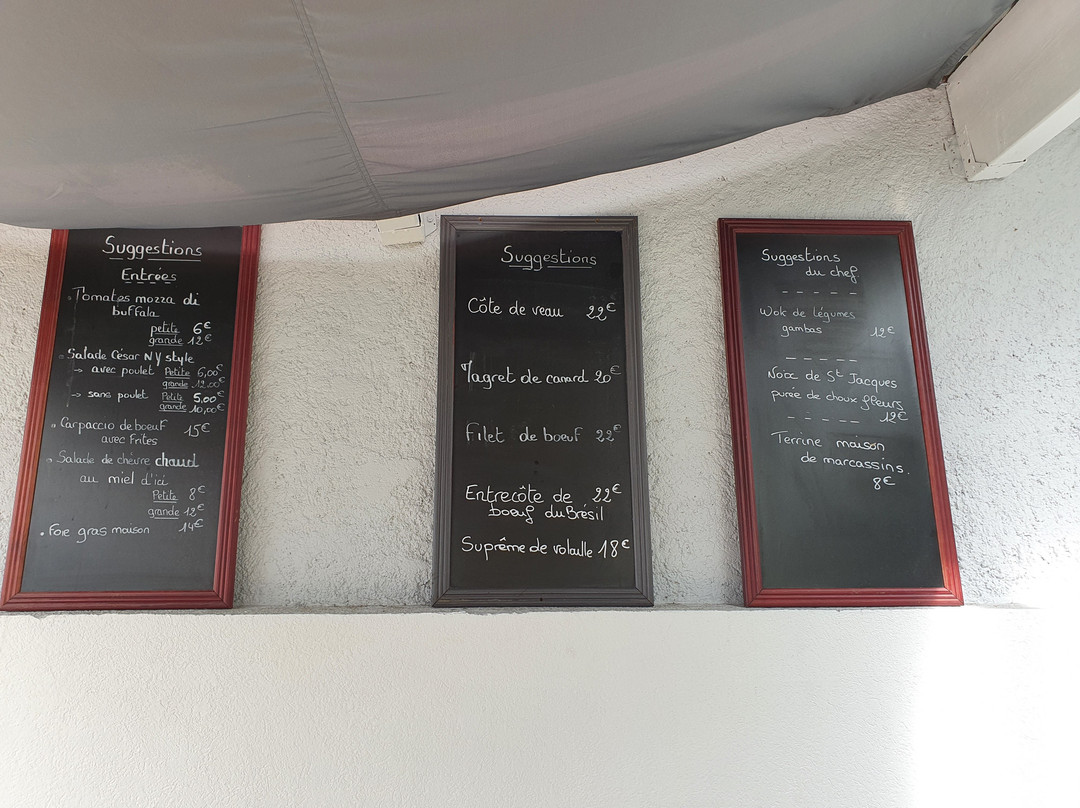 Suggestions
Entrées
Tomates mozza di
buffala
petite 6€
grande 12€
Salade César NY style
→ avec poulet Petite 6,00€
grande 12,00€
→ sans poulet Petite 5,00€
grande 10,00€
Carpaccio de boeuf 15€
avec Frites
Salade de chèvre chaud
au miel d'ici
Petite 8€
grande 12€
Foie gras maison 14€
Suggestions
Côte de veau 22€
Magret de canard 20€
Filet de boeuf 22€
Entrecôte de 22€
boeuf du Brésil
Suprême de volaille 18€
Suggestions
du chef
Wok de légumes
gambas 12€
Noix de St Jacques
purée de choux fleurs
12€
Terrine maison
de marcassins.
8€